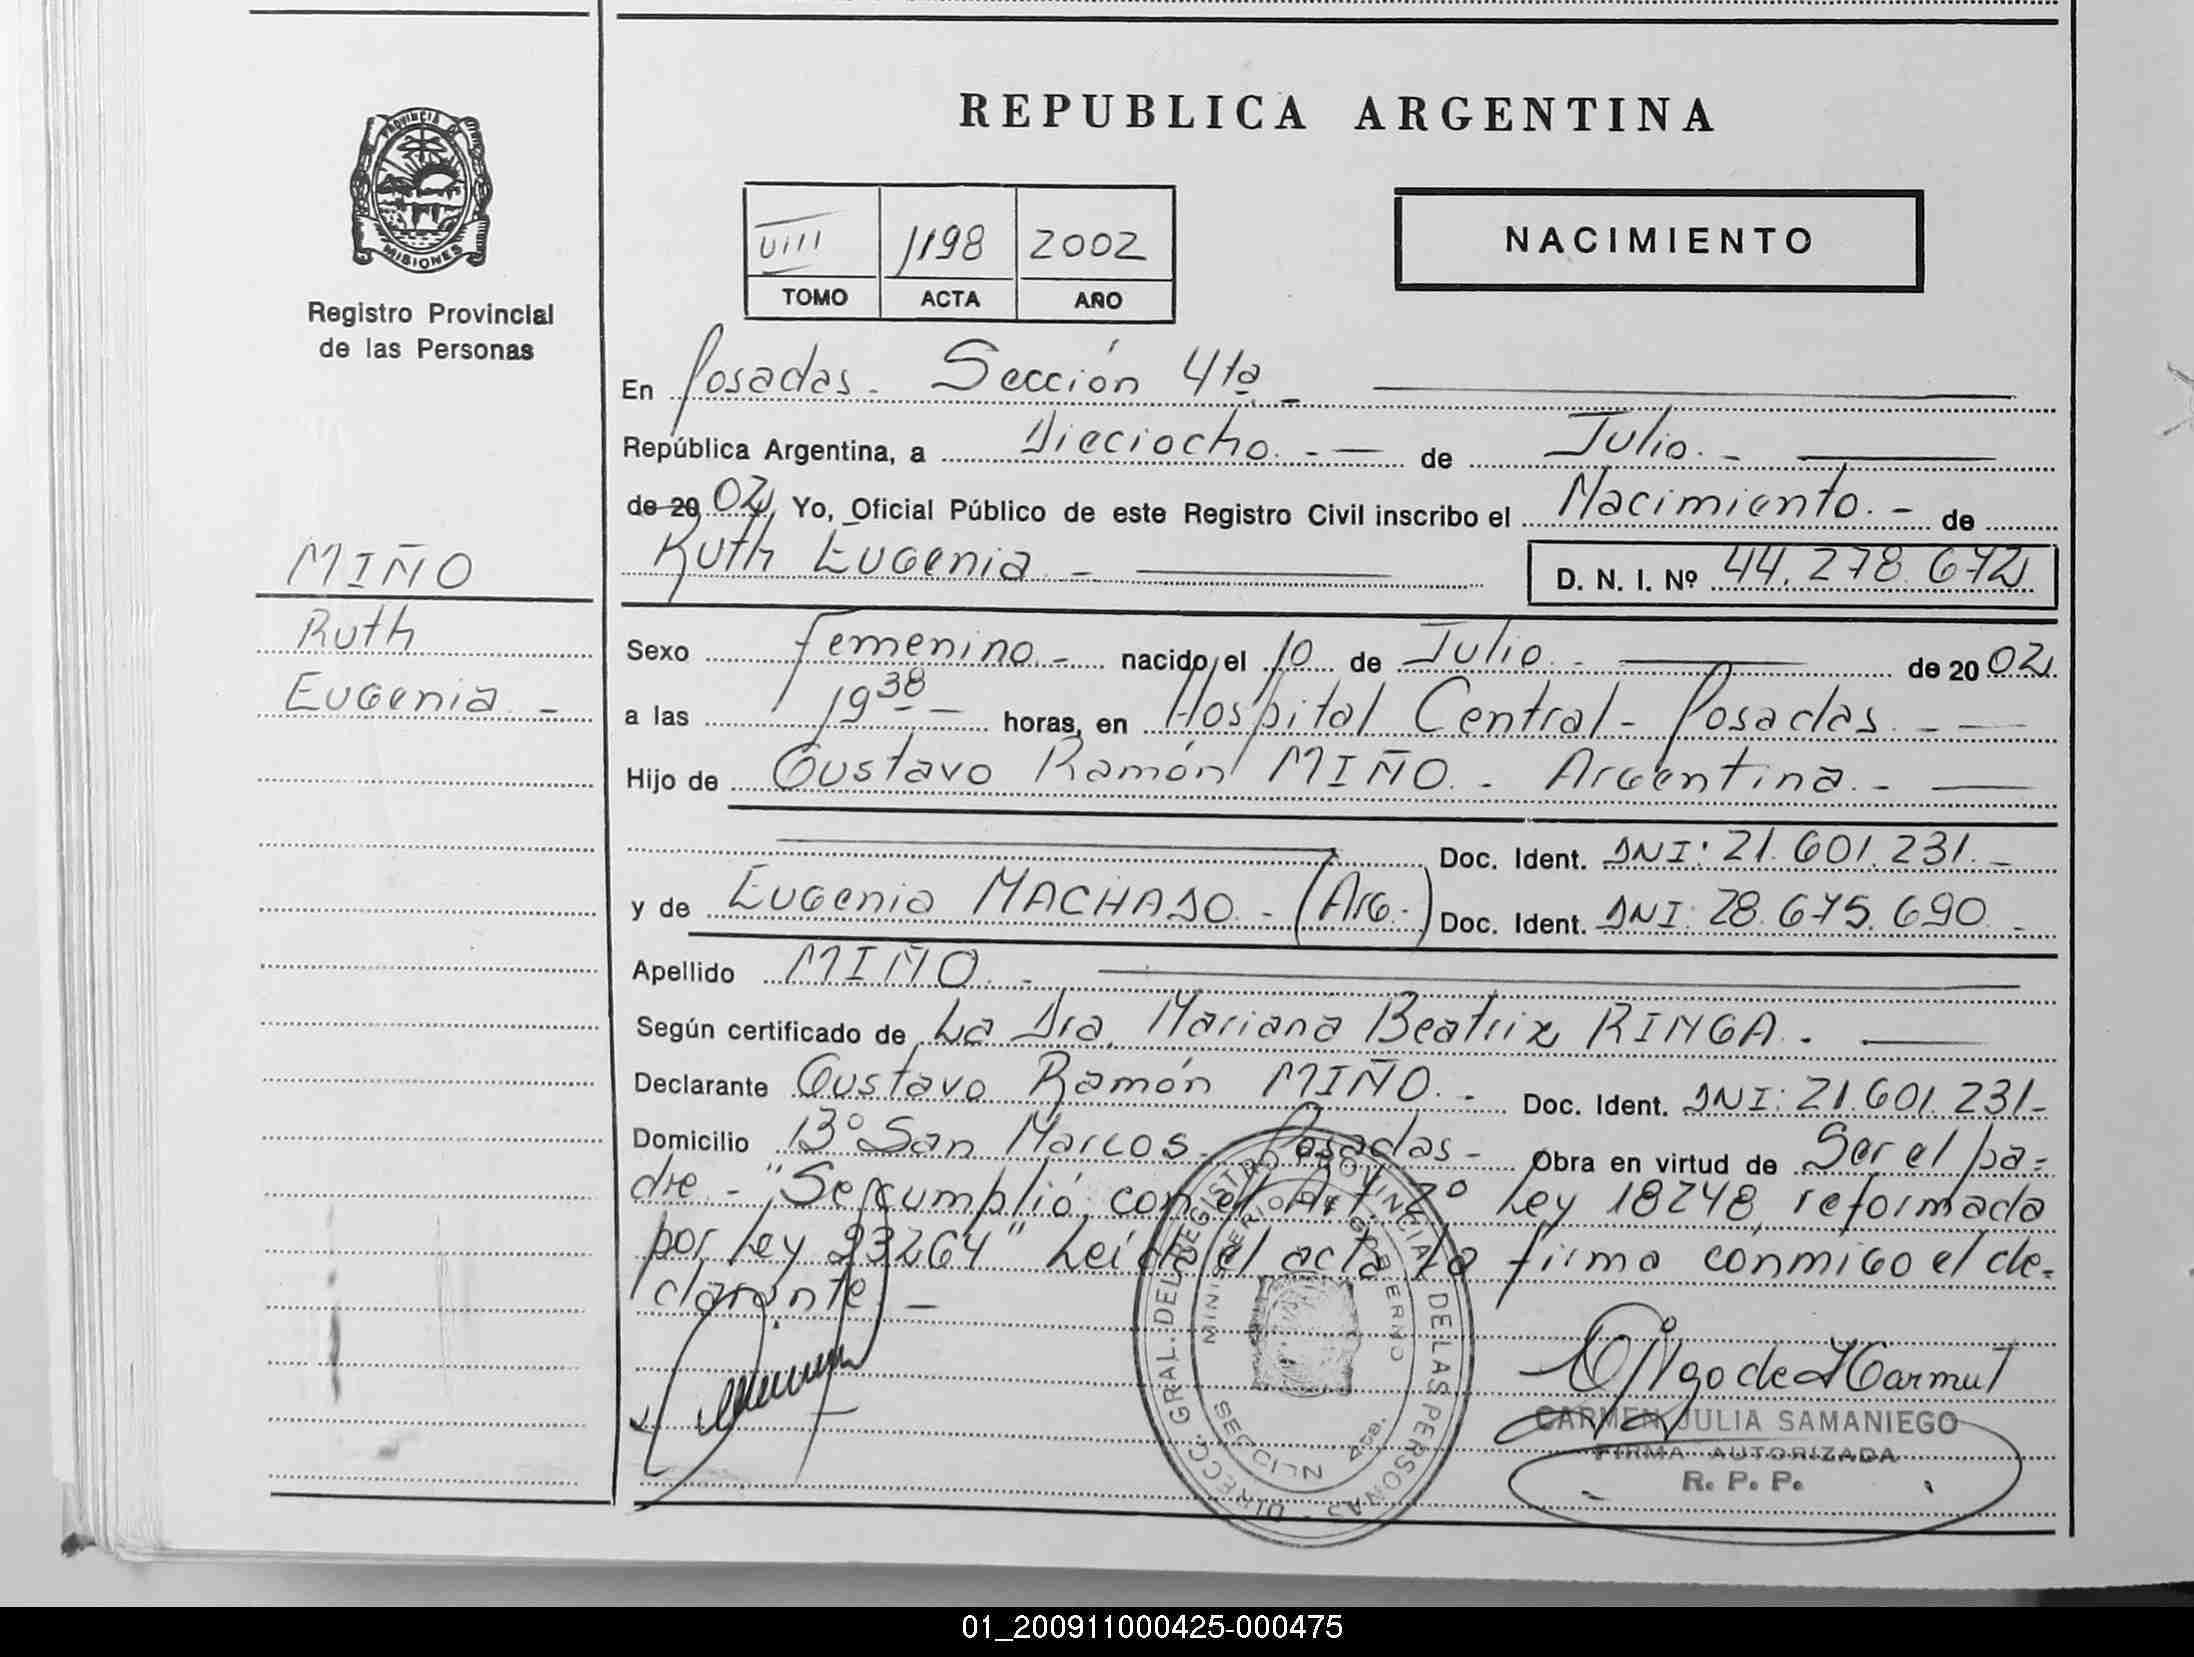 REPUBLICA ARGENTINA
PROVINCIA DE
MISIONES
Registro Provincial
de las Personas
VIII 1198 2002
TOMO ACTA AÑO
NACIMIENTO
En Posadas - Sección 4ta. -
República Argentina, a Dieciocho. - de Julio. -
de 20 02, Yo, Oficial Público de este Registro Civil inscribo el Nacimiento. - de
Ruth Eugenia - D. N. I. Nº 44.278.672
MIÑO
Ruth
Eugenia -
Sexo Femenino. - nacido el 10 de Julio. - de 20 02
a las 19 38 - horas, en Hospital Central - Posadas. -
Hijo de Gustavo Ramón MIÑO. - Argentina. -
Doc. Ident. DNI: 21.601.231. -
y de Eugenia MACHADO - (Arg.) Doc. Ident. DNI: 28.675.690. -
Apellido MIÑO. -
Según certificado de La Dra. Mariana Beatriz RINGA. -
Declarante Gustavo Ramón MIÑO. - Doc. Ident. DNI: 21.601.231-
Domicilio Bº San Marcos - Posadas - Obra en virtud de Ser el pa=
dre - "Se cumplió con el Art. 2º Ley 18248, reformada
por Ley 23264" Leída el acta la firma conmigo el de=
clarante. -
DIRECC. GRAL. DEL REGISTRO PROVINCIAL DE LAS PERSONAS
MINISTERIO DE GOBIERNO
SECCION 4ta.
CARMEN JULIA SAMANIEGO
FIRMA AUTORIZADA
R. P. P.
01_200911000425-000475